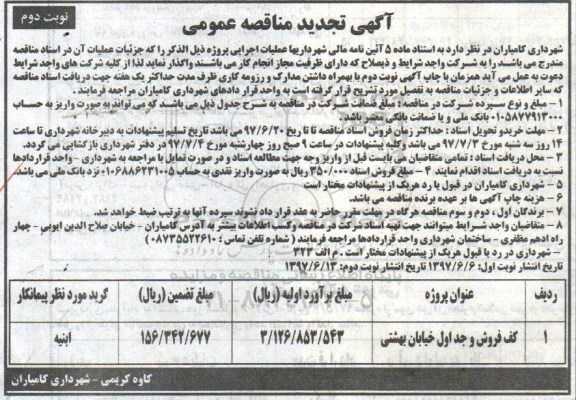 آگهی تجدید مناقصه عمومی
نوبت دوم
شهرداری کامیاران در نظر دارد به استناد ماده ۵ آئین نامه مالی شهرداریها عملیات اجرایی پروژه ذیل الذکر را که جزئیات عملیات آن در اسناد مناقصه
مندرج می باشد را به شرکت واجد شرایط و ذیصلاح که دارای ظرفیت مجاز انجام کار می باشند واگذار نماید لذا از کلیه شرکت های واجد شرایط
دعوت به عمل می آید همزمان با چاپ آگهی نوبت دوم با بهمراه داشتن مدارک و رزومه کاری ظرف مدت حداکثر یک هفته جهت دریافت اسناد مناقصه
که سایر اطلاعات و جزئیات مناقصه به تفصیل مورد تشریح قرار گرفته است به واحد قرار دادهای شهرداری کامیاران مراجعه فرمایند .
۱ - مبلغ و نوع سپرده شرکت در مناقصه : مبلغ ضمانت شرکت در مناقصه به شرح جدول ذیل می باشد که می تواند به صورت واریز به حساب
۰۱۰۵۸۷۷۹۱۳۰۰۰ بانک ملی و یا ضمانت بانکی معتبر باشد.
۲ - مهلت خرید و تحویل اسناد : حداکثر زمان فروش اسناد مناقصه تا تا تاریخ ۹۷/۶/۲۰ می باشد تاریخ تسلیم پیشنهادات به دبیرخانه شهرداری تا ساعت
۱۴ روز سه شنبه مورخ ۹۷/۷/۳ می باشد وکلیه پیشنهادات در ساعت ۹ صبح روز چهارشنبه مورخ ۹۷/۷/۴ در دفتر شهرداری بازگشایی می گردد.
۳ - محل دریافت اسناد : تمامی متقاضیان می بایست قبل از واریز وجه جهت مطالعه اسناد و در صورت تمایل با مراجعه به شهرداری - واحد قراردادها
نسبت به دریافت اسناد اقدام نمایند ۴ - مبلغ فروش اسناد ۳۵۰/۰۰۰ ریال به صورت واریز نقدی به حساب ۰۱۰۶۸۸۶۲۳۱۰۰۵ نزد بانک ملی می باشد.
۵ - شهرداری کامیاران در قبول یا رد هریک از پیشنهادات مختار است
۶ - هزینه چاپ آگهی ها بر عهده برنده مناقصه می باشد.
۷ - برندگان اول ، دوم و سوم مناقصه هرگاه در مهلت مقرر حاضر به عقد قرار داد نشوند سپرده آنها به ترتیب ضبط خواهد شد.
۸ - متقاضیان واجد شرایط میتوانند جهت تهیه اسناد شرکت در مناقصه وکسب اطلاعات بیشتر به آدرس کامیاران - خیابان صلاح الدین ایوبی - چهار
راه ادهم مظفری - ساختمان شهرداری واحد قراردادها مراجعه فرمایند ( شماره تلفن تماس : ۰۸۷۳۵۵۲۲۶۱۰)
- شهرداری در رد یا قبول هریک از پیشنهادات مختار است . م الف ۳۲۳
تاریخ انتشار نوبت اول: ۱۳۹۷/۶/۶ تاریخ انتشار نوبت دوم: ۱۳۹۷/۶/۱۳
ردیف عنوان پروژه مبلغ برآورد اولیه (ریال) مبلغ تضمین (ریال) گرید مورد نظر پیمانکار
۱ کف فروش و جد اول خیابان بهشتی ۳/۱۲۶/۸۵۳/۵۴۳ ۱۵۶/۳۴۲/۶۷۷ ابنیه
کاوه کریمی - شهرداری کامیاران